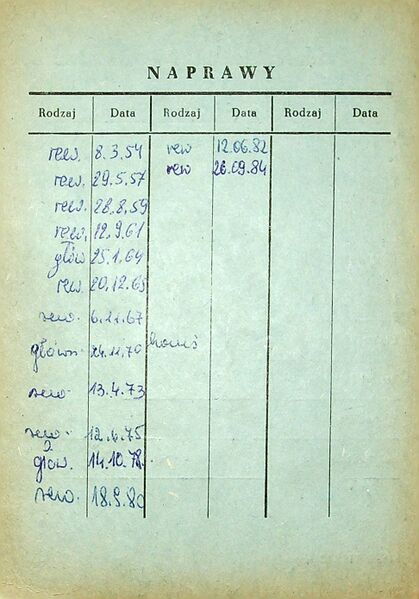 NAPRAWY
Rodzaj Data Rodzaj Data Rodzaj Data
rew. 8.3.54 rew 12.06.82
rew. 29.5.57 rew 26.09.84
rew. 28.8.59
rew. 12.9.61
głów 25.1.64
rew. 20.12.65
rew. 67
główn. 24.11.70
rew. 13.4.73
rew. 12.6.75
głów. 14.10.78.
rew. 18.9.80